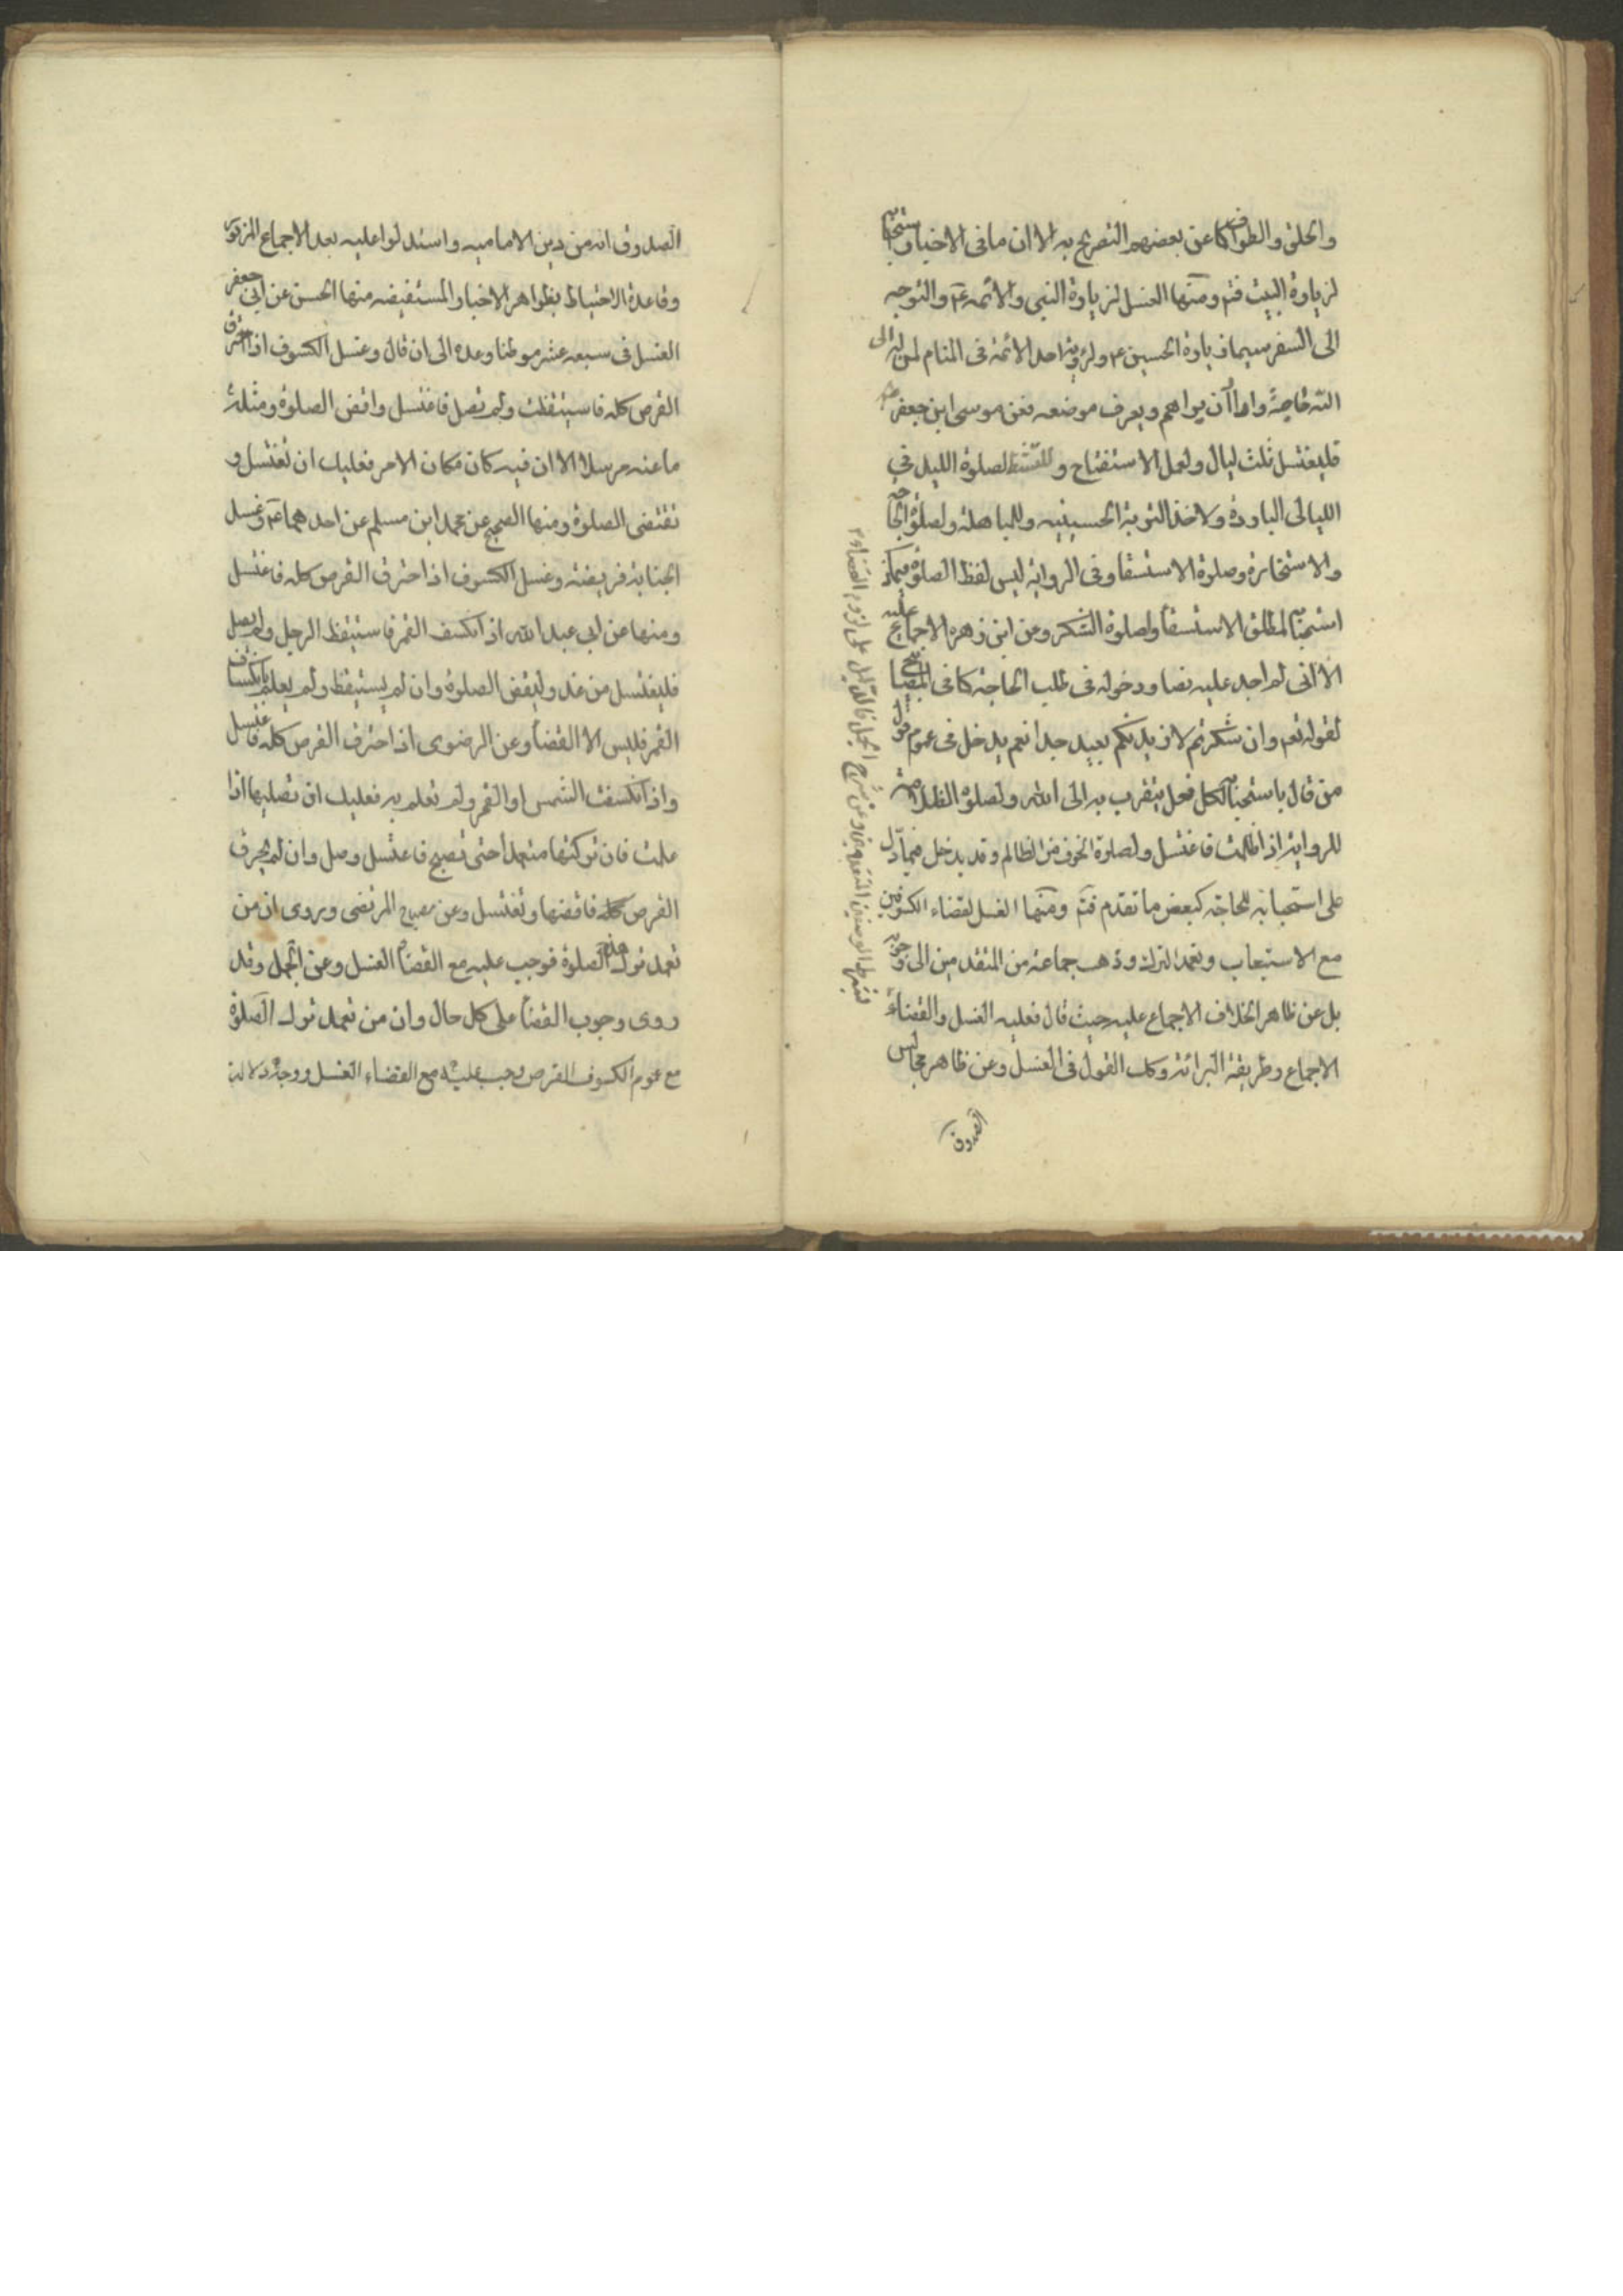 والحلق والطواف كما عن بعضهم التصريح به الا ان ما فى الاخبار استحبابه
لزيارة البيت فتم ومنها الغسل لزيارة النبى والائمه عم والتوجه
الى السفر سيما زيارة الحسين ع ولرؤية احد الائمة فى المنام لمن له الى
الله حاجة واراد ان يراهم ويعرف موضعه فعن موسى ابن جعفر
فليغتسل ثلث ليال ولعمل الاستفتاح و للتنشط لصلوة الليل فى
الليالى الباردة ولاخذ التربة الحسينيه وللمباهلة ولصلوة الحاجة
والاستخارة وصلوة الاستسقا وفى الرواية ليس لفظ الصلوة فيمكن
استحبابه لمطلق الاستسقاء ولصلوة الشكر وعن ابن زهره الاجماع عليه
الا انى لم اجد عليه نصا ودخوله فى طلب الحاجة كما فى المصابيح
لقوله تعم وان شكرتم لازيدنكم بعيد جدا نعم يدخل فى عموم قول
من قال باستحبابه لكل فعل يتقرب به الى الله ولصلوة الظلامة
للرواية اذا ظلمت فاغتسل ولصلوة الخوف من الظالم وقد يدخل فيما دل
على استحبابه للحاجة كبعض ما تقدم فتم ومنها الغسل لقضاء الكسوفين
مع الاستيعاب وتعمد الترك وذهب جماعة من المتقدمين الى وجوبه
بل عن ظاهر الخلاف الاجماع عليه حيث قال فعليه الغسل والقضاء
الاجماع وطريقة البرائة وكك القول فى الغسل وعن ظاهر مجالس
الصدوق
بشرط الوصفين المتقدمين وعن شرح الجمل فالدليل على لزوم القضاء
الصدوق انه من دين الاماميه واستدلوا عليه بعد الاجماع المزبور
وقاعدة الاحتياط بظواهر الاخبار المستفيضه منها الحسن عن ابى جعفر
الغسل فى سبعه عشر موطنا وعده الى ان قال وغسل الكسوف اذا احترق
القرص كله فاستيقظت ولم تصل فاغتسل واقض الصلوة ومثله
ما عنه مرسلا الا ان فيه كان مكان الامر فعليك ان تغتسل و
تقتضى الصلوة ومنها الصحيح عن محمد ابن مسلم عن احدهما عم وغسل
الجنابة فريضة وغسل الكسوف اذا احترق القرص كله فاغتسل
ومنها عن ابى عبد الله اذا انكسف القمر فاستيقظ الرجل ولم يصل
فليغتسل من غد وليقض الصلوة وان لم يستيقظ ولم يعلم بانكساف
القمر فليس الا القضاء وعن الرضوى اذا احترق القرص كله فاغتسل
واذا انكسفت الشمس او القمر ولم تعلم به فعليك ان تصليها اذا
علمت فان تركتها متعمدا حتى تصبح فاغتسل وصل وان لم يحرق
القرص كله فاقضها وتغتسل وعن مصباح المرتضى ويروى ان من
تعمد ترك هذه الصلوة فوجب عليه مع القضاء الغسل وعن الجمل وقد
روى وجوب القضاء على كل حال وان من تعمد ترك الصلوة
مع عموم الكسوف القرص وجب عليه مع القضاء الغسل ووجه دلالة